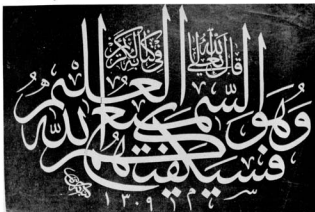 قال الله العلي
في كتابه الكريم
فسيكفيكهم الله
وهو السميع العليم
سنة ١٣٠٩